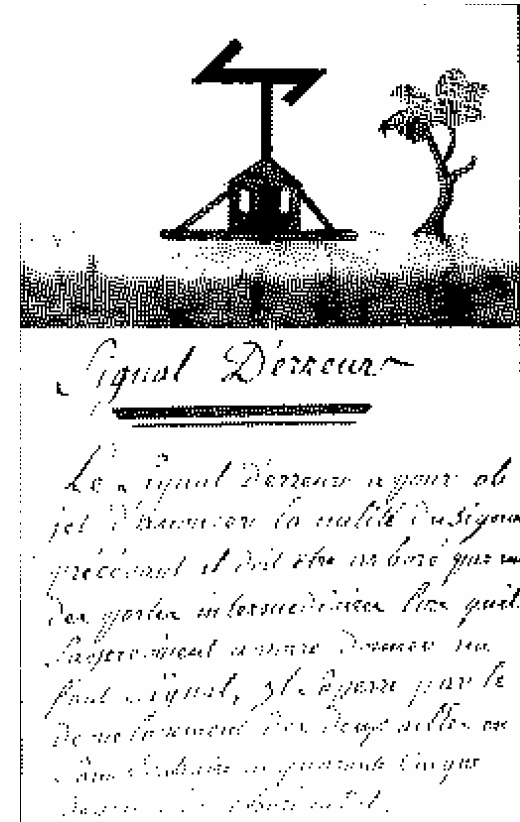 Signal D'erreur
Le Signal D'erreur a pour ob
jet D'annoncer la nulité du Signal
précédant et doit être arboré par
des postes intermédiaires lors qu'ils
S'apperçoivent avoir donner un
faux Signal, Il S'opere par le
develloppement des deux ailles en
Sens Contraire a quarante Cinq